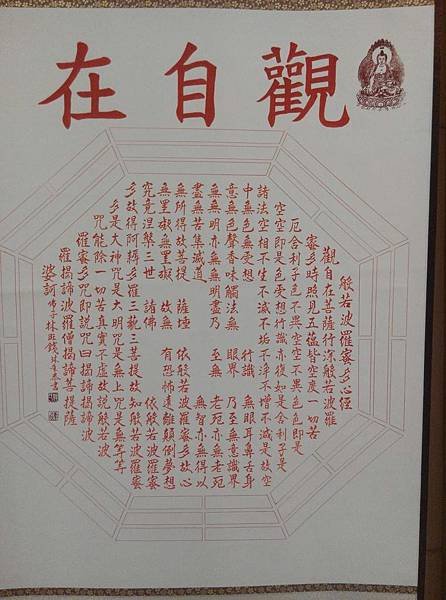 觀自在
般若波羅蜜多心經
觀自在菩薩行深般若波羅
蜜多時照見五蘊皆空度一切苦
厄舍利子色不異空空不異色色即是
空空即是色受想行識亦復如是舍利子是
諸法空相不生不滅不垢不淨不增不減是故空
中無色無受想 行識 無眼耳鼻舌身
意無色聲香味觸法無 眼界 乃至無意識界
無無明亦無無明盡乃 至無 老死亦無老死
盡無苦集滅道 無智亦無得以
無所得故菩提 薩埵 依般若波羅蜜多故心
無罣礙無罣礙 故無 有恐怖遠離顛倒夢想
究竟涅槃三世 諸佛 依般若波羅蜜
多故得阿耨多羅三藐三菩提故知般若波羅蜜
多是大神咒是大明咒是無上咒是無等等
咒能除一切苦真實不虛故說般若波
羅蜜多咒即說咒曰揭諦揭諦波
羅揭諦波羅僧揭諦菩提薩
婆訶 佛子林